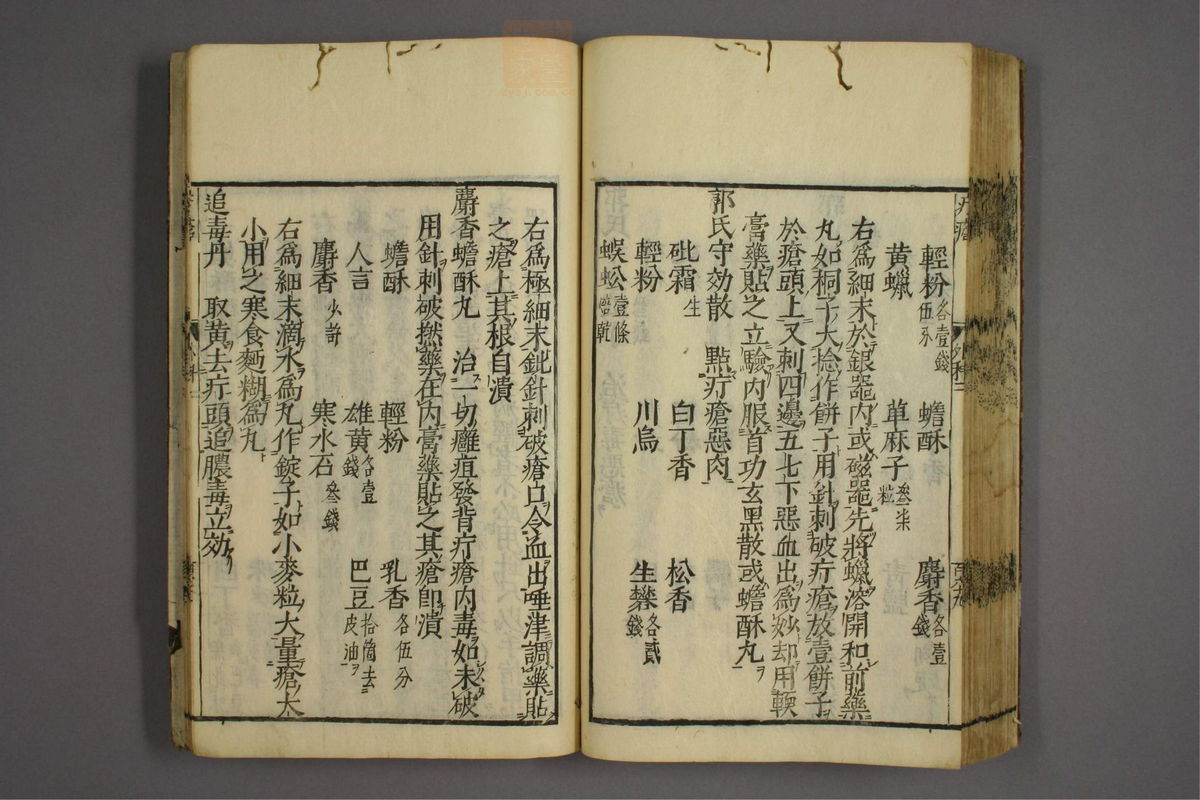 輕粉各壹錢伍分 蟾酥 麝香各壹錢
黃蠟 草麻子叁柒粒
右爲細末於銀器內或磁器先將蠟溶開和前藥
丸如桐子大捻作餅子用針刺破疔瘡放壹餅子
於瘡頭上又刺四邊五七下惡血出爲妙却用軟
膏藥貼之立驗內服首功玄黑散或蟾酥丸
郭氏守効散 點疔瘡惡肉
砒霜生 白丁香 松香
輕粉 川烏 生礬各貳錢
蜈蚣壹條焙乾
右爲極細末鈚針刺破瘡口令血出唾津調藥貼
之瘡上其根自潰
麝香蟾酥丸 治一切癰疽發背疔瘡內毒如未破
用針刺破撚藥在內膏藥貼之其瘡卽潰
蟾酥 輕粉 乳香各伍分
人言 雄黃各壹錢 巴豆拾箇去皮油
麝香少許 寒水石叁錢
右爲細末滴水爲丸作錠子如小麥粒大量瘡大
小用之寒食麵糊爲丸
追毒丹 取黃去疔頭追膿毒立効